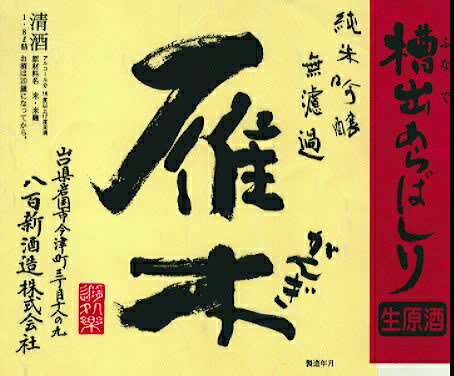 槽出あらばしり
ふなで
生原酒
純米吟醸
無濾過
雁木
がんぎ
清酒
アルコール分
原材料名 米・米麹
1.8ℓ詰 お酒は20歳になってから。
山口県岩国市今津町三丁目十八の九
八百新酒造株式会社
製造年月